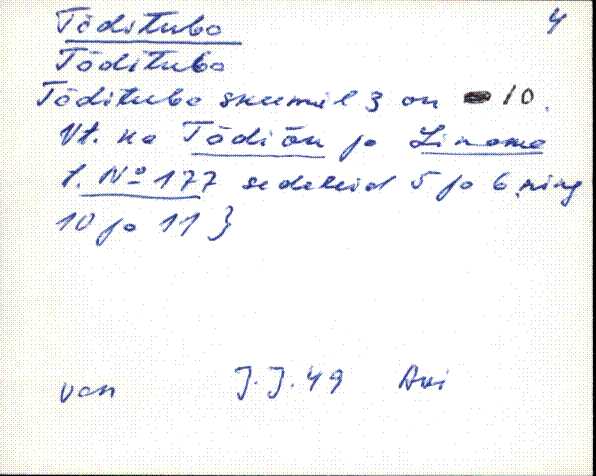 4
Tõditubo
Tõditubo
Tõditubo skeemil 3 on 10.
Vt. ka Tõdiõu ja Linama
l. No 177 sedeleid 5 ja 6 ning
10 ja 11 }
van J.J. 49 Avi